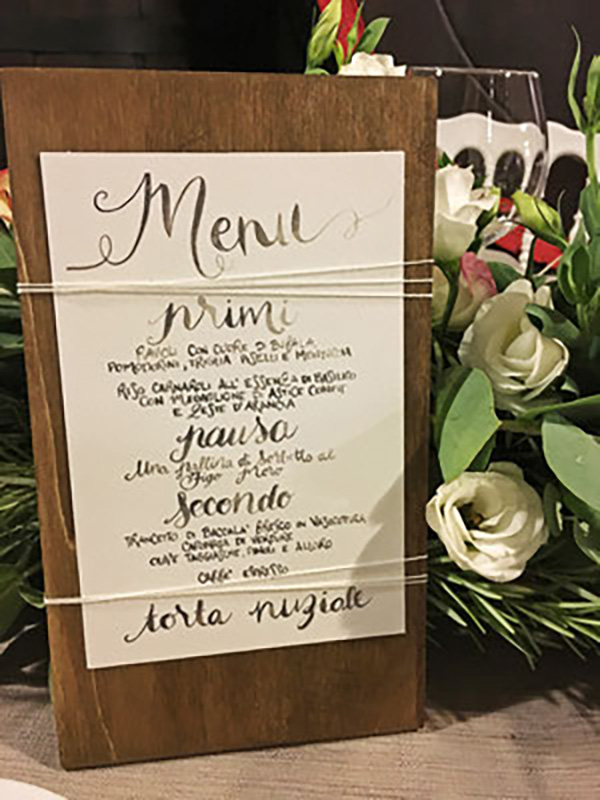 Menu
primi
RAVIOLI CON CUORE DI BUFALA
POMODORINI, TRIGLIA PISELLI E MENTUCCIA
RISO CARNAROLI ALL' ESSENZA DI BASILICO
CON MEDAGLIONE DI ASTICE CONFIT
E ZESTE D'ARANCIA
pausa
Una pallina di Sorbetto al
Figo Moro
Secondo
TRANCETTO DI BACCALA' FRESCO IN VASOCOTTURA
CAPONATA DI VERDURE
OLIVE TAGGIASCHE, PINOLI E ALLORO
CAFFE' ESPRESSO
torta nuziale